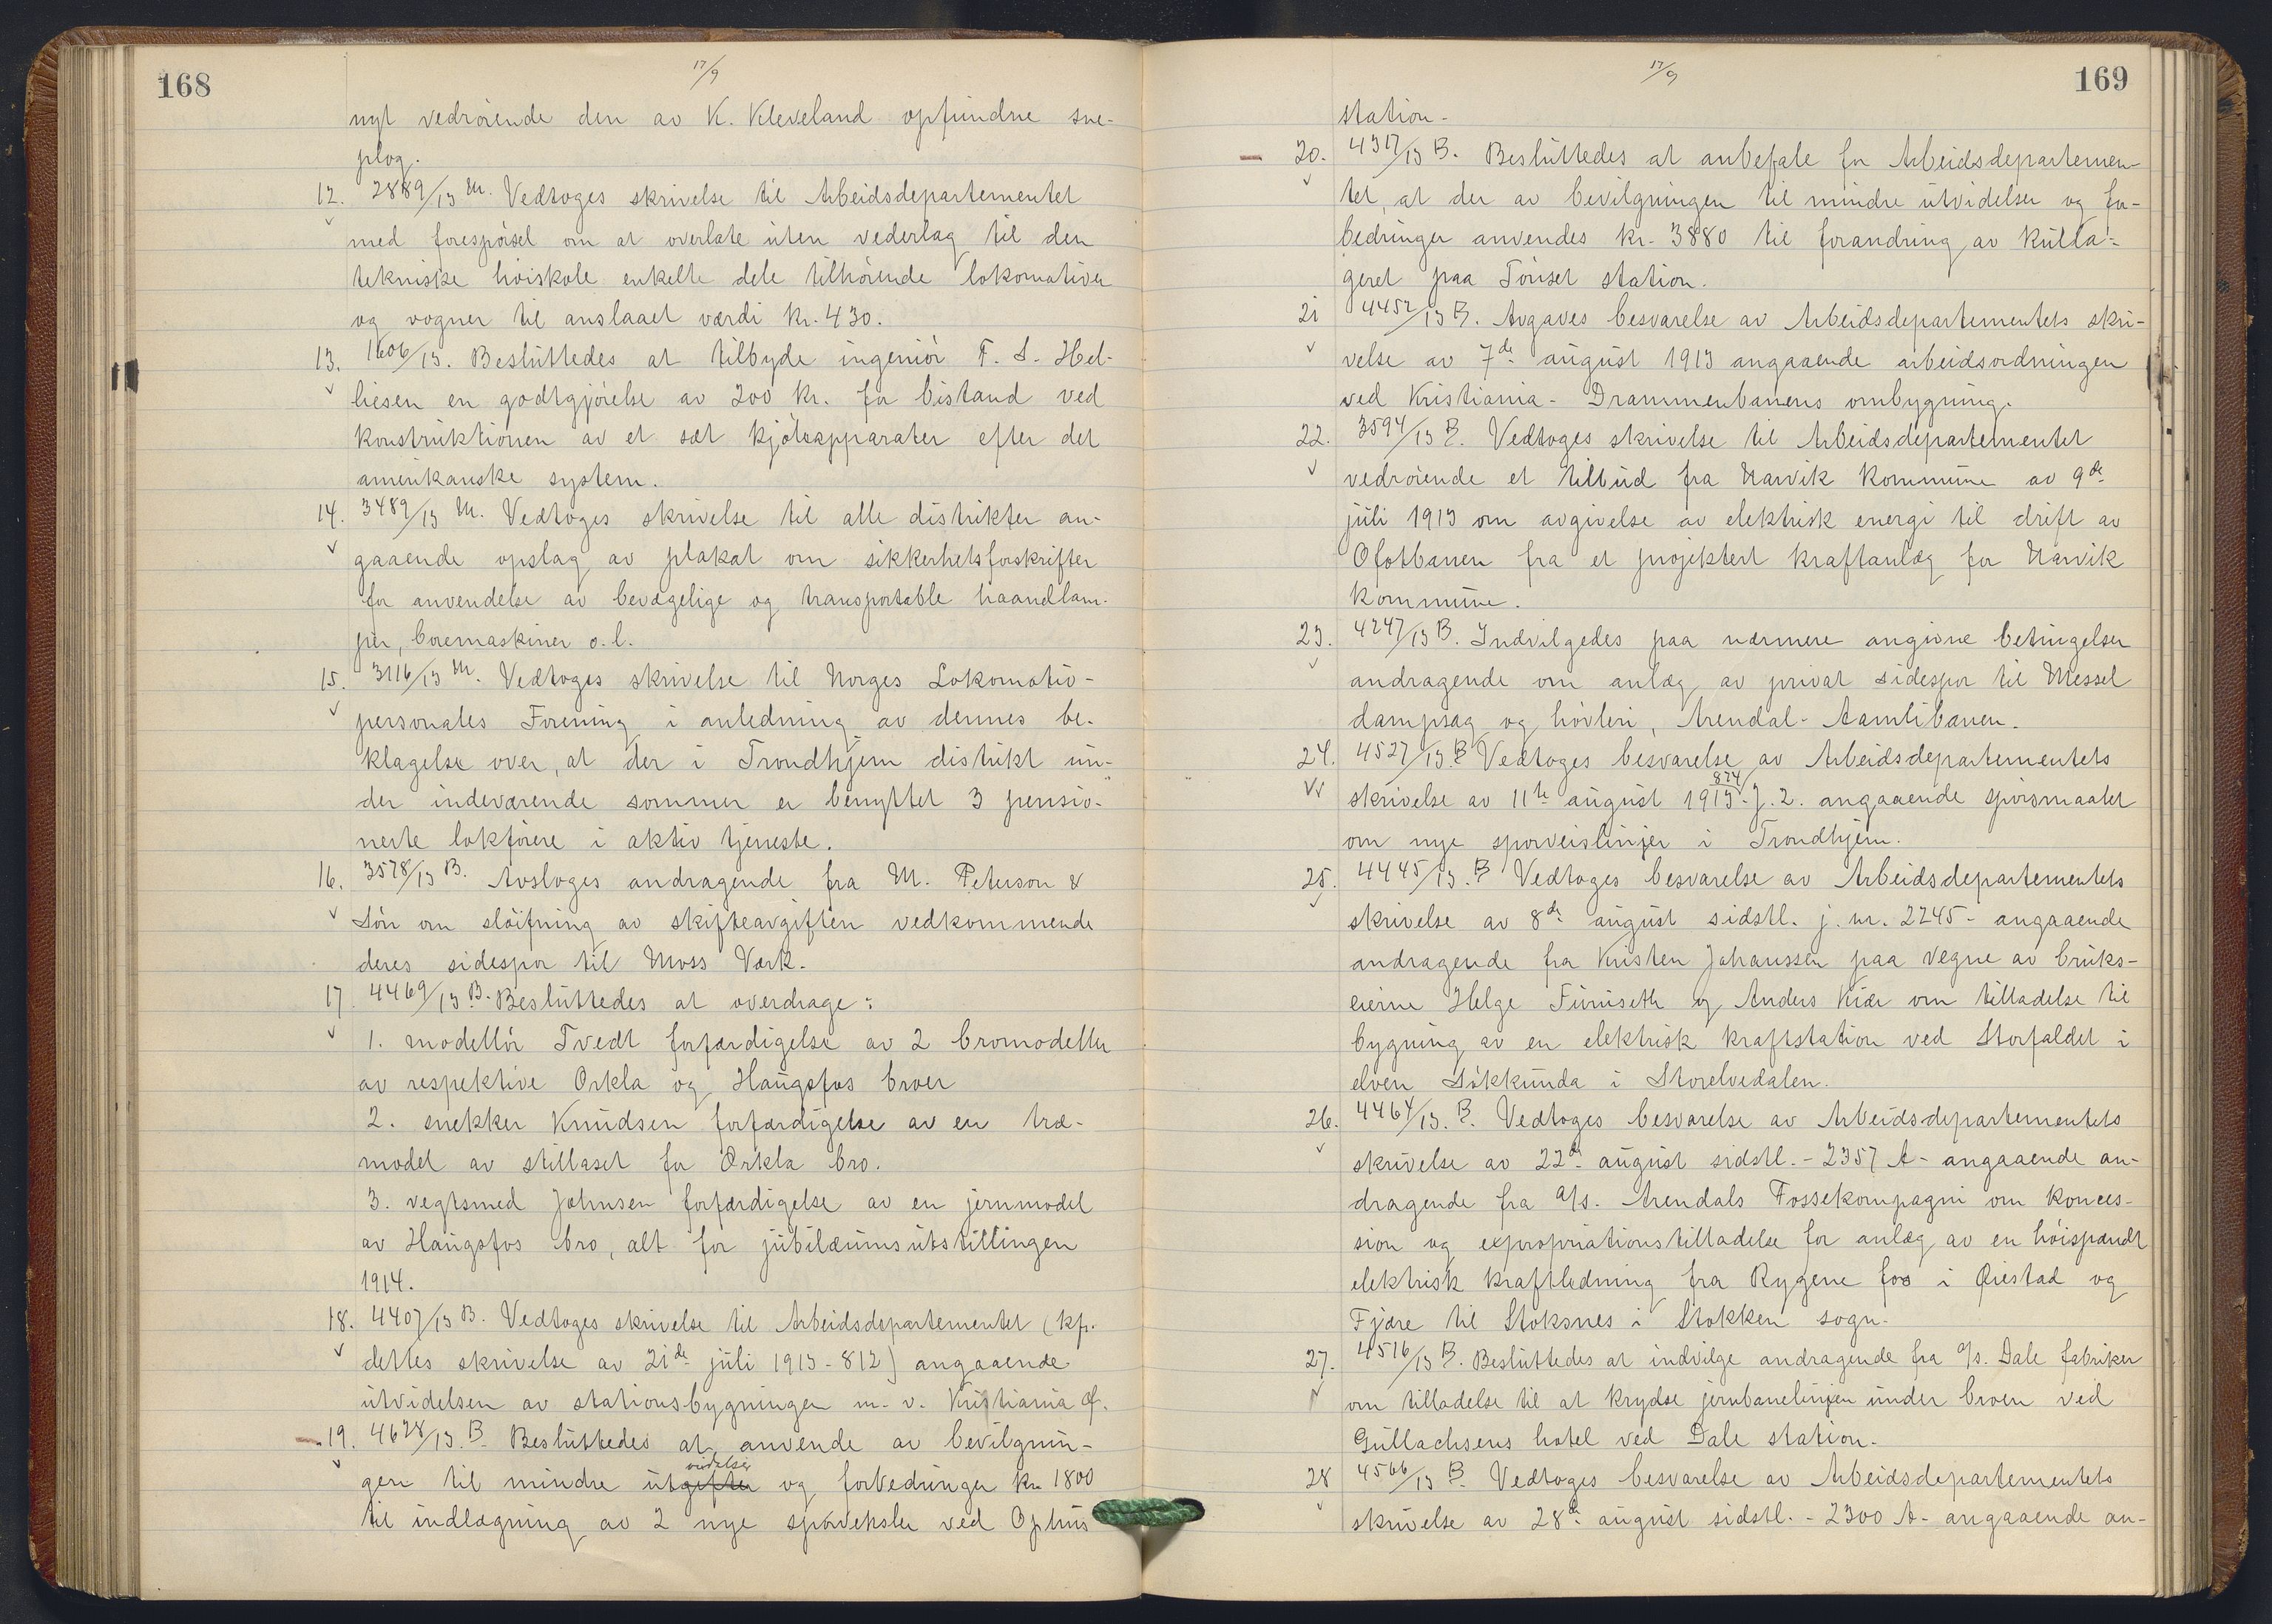 168
17/9
nyt vedrørende den av K. Kleveland opfundne sne-
plog.
12. 2889/13 M. Vedtoges skrivelse til Arbeidsdepartementet
med forespørsel om at overlate uten vederlag til den
tekniske høiskole enkelte dele tilhørende lokomotiver
og vogner til anslaaet værdi kr. 430.
13. 1606/13. Besluttedes at tilbyde ingeniør F. S. Hel-
liesen en godtgjørelse av 200 kr. for bistand ved
konstruktionen av et sæt kjøleapparater efter det
amerikanske system.
14. 3489/13 M. Vedtoges skrivelse til alle distrikter an-
gaaende opslag av plakat om sikkerhetsforskrifter
for anvendelse av bevægelige og transportable haandlam-
per, boremaskiner o.l.
15. 3116/13 M. Vedtoges skrivelse til Norges Lokomotiv-
personales Forening i anledning av dennes be-
klagelse over, at der i Trondhjem distrikt un-
der indeværende sommer er benyttet 3 pensio-
nerte lokførere i aktiv tjeneste.
16. 3578/13 B. Avsloges andragende fra M. Peterson &
Søn om sløifning av skifteavgiften vedkommende
deres sidespor til Moss Værk.
17. 4469/13 B. Besluttedes at overdrage:
1. modellør Tvedt forfærdigelse av 2 bromodeller
av respektive Orkla og Haugsfos broer
2. snekker Knudsen forfærdigelse av en træ-
model av stillaset for Orkla bro.
3. vegtsmed Johnsen forfærdigelse av en jernmodel
av Haugsfos bro, alt for jubilæumsutstillingen
1914.
18. 4407/13 B. Vedtoges skrivelse til Arbeidsdepartementet (kfr.
dettes skrivelse av 21de juli 1913 - 812) angaaende
utvidelsen av stationsbygningen m. v. Kristiania Ø.
19. 4628/13. B. Besluttedes at anvende av bevilgnin-
videlser
gen til mindre utgifter og forbedringer kr. 1800
til indlægning av 2 nye sporveksler ved Ophus
17/9
169
station.
20. 4317/13 B. Besluttedes at anbefale for Arbeidsdepartemen-
tet, at der av bevilgningen til mindre utvidelser og for-
bedringer anvendes kr. 3880 til forandring av kulla-
geret paa Tønset station.
21 4452/13 B. Avgaves besvarelse av Arbeidsdepartementets skri-
velse av 7de august 1913 angaaende arbeidsordningen
ved Kristiania - Drammenbanens ombygning.
22. 3594/13 B. Vedtoges skrivelse til Arbeidsdepartementet
vedrørende et tilbud fra Narvik kommune av 9de
juli 1913 om avgivelse av elektrisk energi til drift av
Ofotbanen fra et projektert kraftanlæg for Narvik
kommune.
23. 4247/13 B. Indvilgedes paa nærmere angivne betingelser
andragende om anlæg av privat sidespor til Messel
dampsag og høvleri, Arendal - Aamlibanen.
24. 4527/13. B Vedtoges besvarelse av Arbeidsdepartementets
874
skrivelse av 11te august 1913 - J. 2. angaaende spørsmaalet
om nye sporveislinjer i Trondhjem.
25. 4445/13. B Vedtoges besvarelse av Arbeidsdepartementets
skrivelse av 8de august sidstl. j. nr. 2245 - angaaende
andragende fra Kristen Johanssen paa vegne av bruks-
eierne Helge Furuseth og Anders Kiær om tilladelse til
bygning av en elektrisk kraftstation ved Storfaldet i
elven Søkkunda i Storelvedalen.
26. 4464/13. B. Vedtoges besvarelse av Arbeidsdepartementets
skrivelse av 22de august sidstl. - 2357 A - angaaende an-
dragende fra A/s. Arendals Fossekompagni om konces-
sion og expropriationstilladelse for anlæg av en høispændt
elektrisk kraftledning fra Rygene fos i Øiestad og
Fjære til Stoksnes i Stokken sogn.
27. 4516/13 B. Besluttedes at indvilge andragende fra A/s. Dale fabriker
om tilladelse til at krydse jernbanelinjen under broen ved
Gullachsens hotel ved Dale station.
28 4566/13 B. Vedtoges besvarelse av Arbeidsdepartementets
skrivelse av 28de august sidstl. - 2300 A - angaaende an-